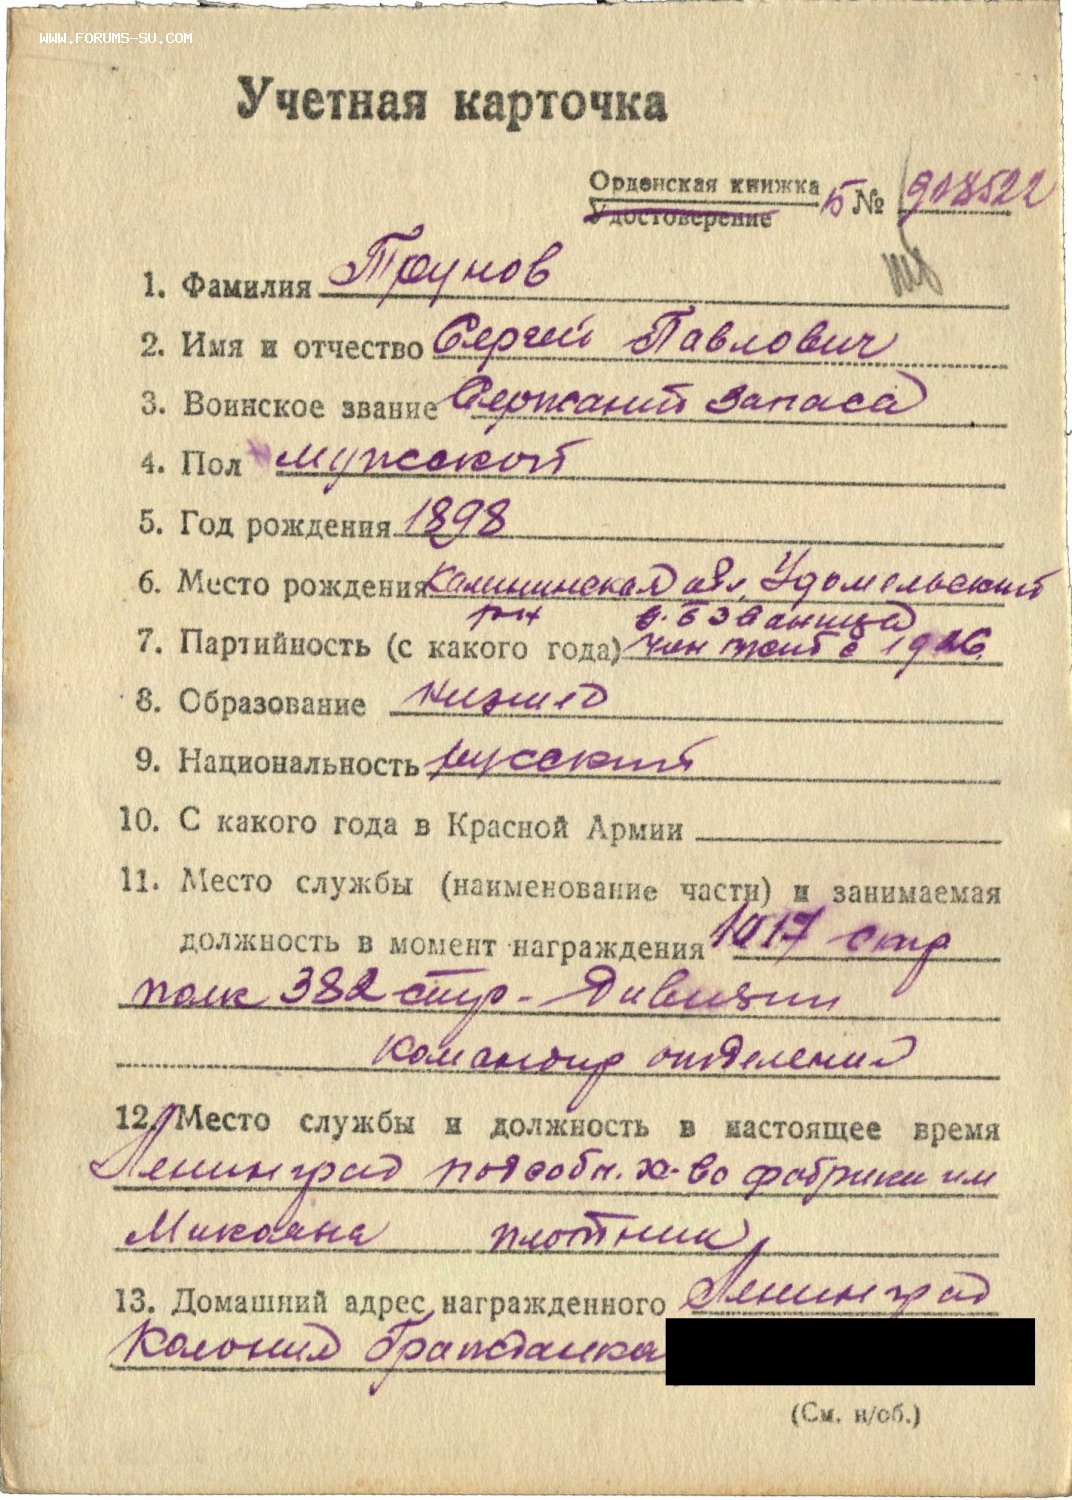 WWW.FORUMS-SU.COM
Учетная карточка
Орденская книжка
Удостоверение
Б № 918522
1. Фамилия Трунов
2. Имя и отчество Сергей Павлович
3. Воинское звание Сержант запаса
4. Пол мужской
5. Год рождения 1898
6. Место рождения Калининская обл, Удомельский
р-н д.
7. Партийность (с какого года) член с 1926
8. Образование низшее
9. Национальность русский
10. С какого года в Красной Армии
11. Место службы (наименование части) и занимаемая
должность в момент награждения 1017 стр
полк 382 стр. дивизии
командир отделения
12. Место службы и должность в настоящее время
Ленинград подсобн. х-во фабрики им
Микояна плотник
13. Домашний адрес награжденного Ленинград
Колония Гражданка
(См. н/об.)